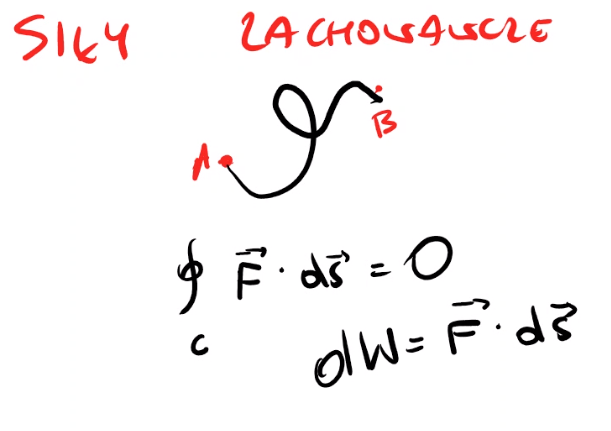 SIŁY ZACHOWAWCZE
A
B
∮ F⃗ · ds⃗ = 0
C
dW = F⃗ · ds⃗